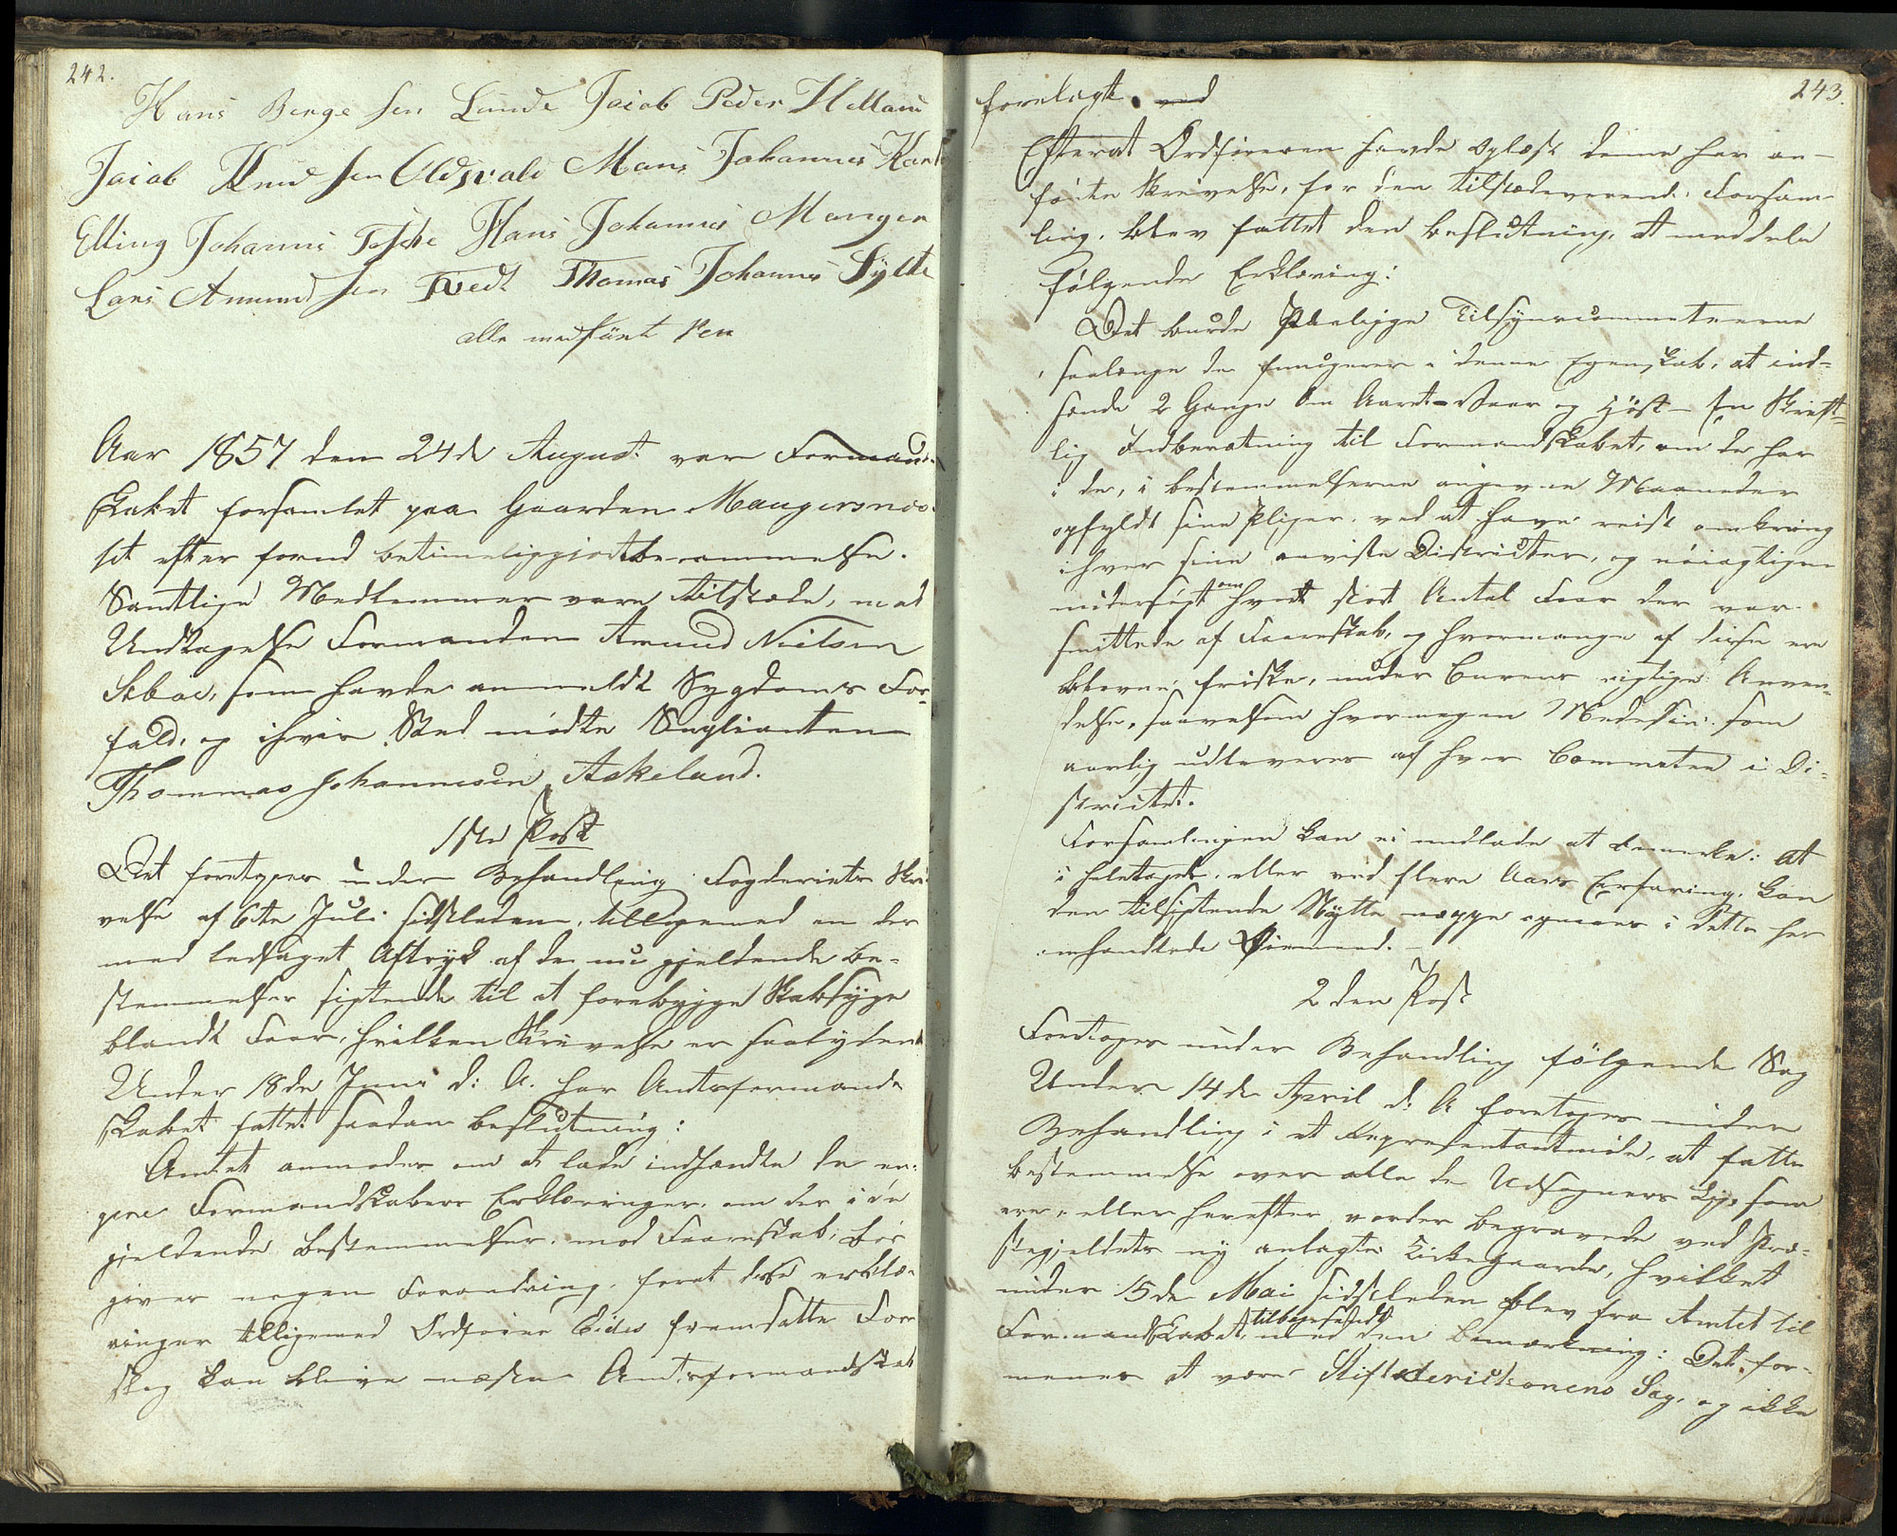 242.
Hans Berge sen Lunde Jacob Peder Helland
Jacob Knud sen Oldsvale Mans Johannes
Elling Johannes Hans Johannes Manger
Lars Amund sen Tvedt Thomas Johannes Sylte
alle med paaholden Pen
Aar 1857 den 24de August var Formand-
skabet forsamlet paa Gaarden Maugersnæs-
set efter forud betimeliggjort berammelse.
Samtlige Medlemmer vare tilstæde, med
Undtagelse Formanden Amund Nielsen
Sæbøe, som havde anmeldt Sygdoms For-
fald, og i hvis Sted mødte Suplianten
Thommas Johannesen Askeland.
1ste Post
Det foretoges under Behandling Fogderiets Skri-
velse af 6te Juli sidstleden, tilligemed en der
med ledsaget Aftryk af de nu gjeldende Be-
stemmelser sigtende til at forebygge Skabsyge
blandt Faar, hvilken Skrivelse er saalydende
Under 18de Juni d: A. har Amtsformand-
skabet fattet saadan beslutning:
Amtet anmodes om at lade indhændte de
Formandskabers Erklæringer, om der i de
gjeldende bestemmelser mod Faareskab, bør
gives nogen Forandring, foret disse erklæ-
ringer tilligemed Ordfører Eides fremsatte For-
slag kan blive næste Amtsformandskab
243.
forelagt. ved
Efterat Ordføreren havde oplæst denne her an-
førte Skrivelse, for den tilstedeværende Forsam-
ling, blev fattet den beslutning, at meddele
følgende Erklæring:
Det burde Paaligge Tilsynscommeteerne
saalænge de fungerer i denne Egenskab, at ind-
sænde 2 Gange Om Aaret - Vaar og Høst - en Skrift-
lig Indberetning til Formandskabet, om de har
i de, i bestemmelserne angivne Maaneder
opfyldt sine Pligter, ved at have reist omkring
i hver sine anviste Districter, og nøiagtigen
undersøgt om hvert stort Antal Faar der var
smittede af Faareskab, og hvormange af disse ere
blevne friske, under Curens rigtige Anven-
delse, saavelsom hvormegen Medesin som
aarlig udleveres af hver Commetee i Di-
strictet.
Forsamlingen kan ei undlade at bemerke: At
i heletaget, eller ved flere Aars Erfaring, kan
den tilsigtende Nytte neppe opnaaes i dette her
omhandlede Øiemed. -
2den Post
Foretoges under Behandling følgende Sag
Under 14de April d: A foretoges under
Behandling i et Representantmøde, at fatte
bestemmelse over alle de Udsogners Lig, som
ere, eller herefter vorder begravede ved Præ-
stegjeldets ny anlagte Kirkegaarde, hvilket
under 15de Mai sidstleden blev fra Amtet til
Formandskabet tilbagesendt med den bemærkning: Det for-
menes at være Stiftsderictionens Sag, og ikke